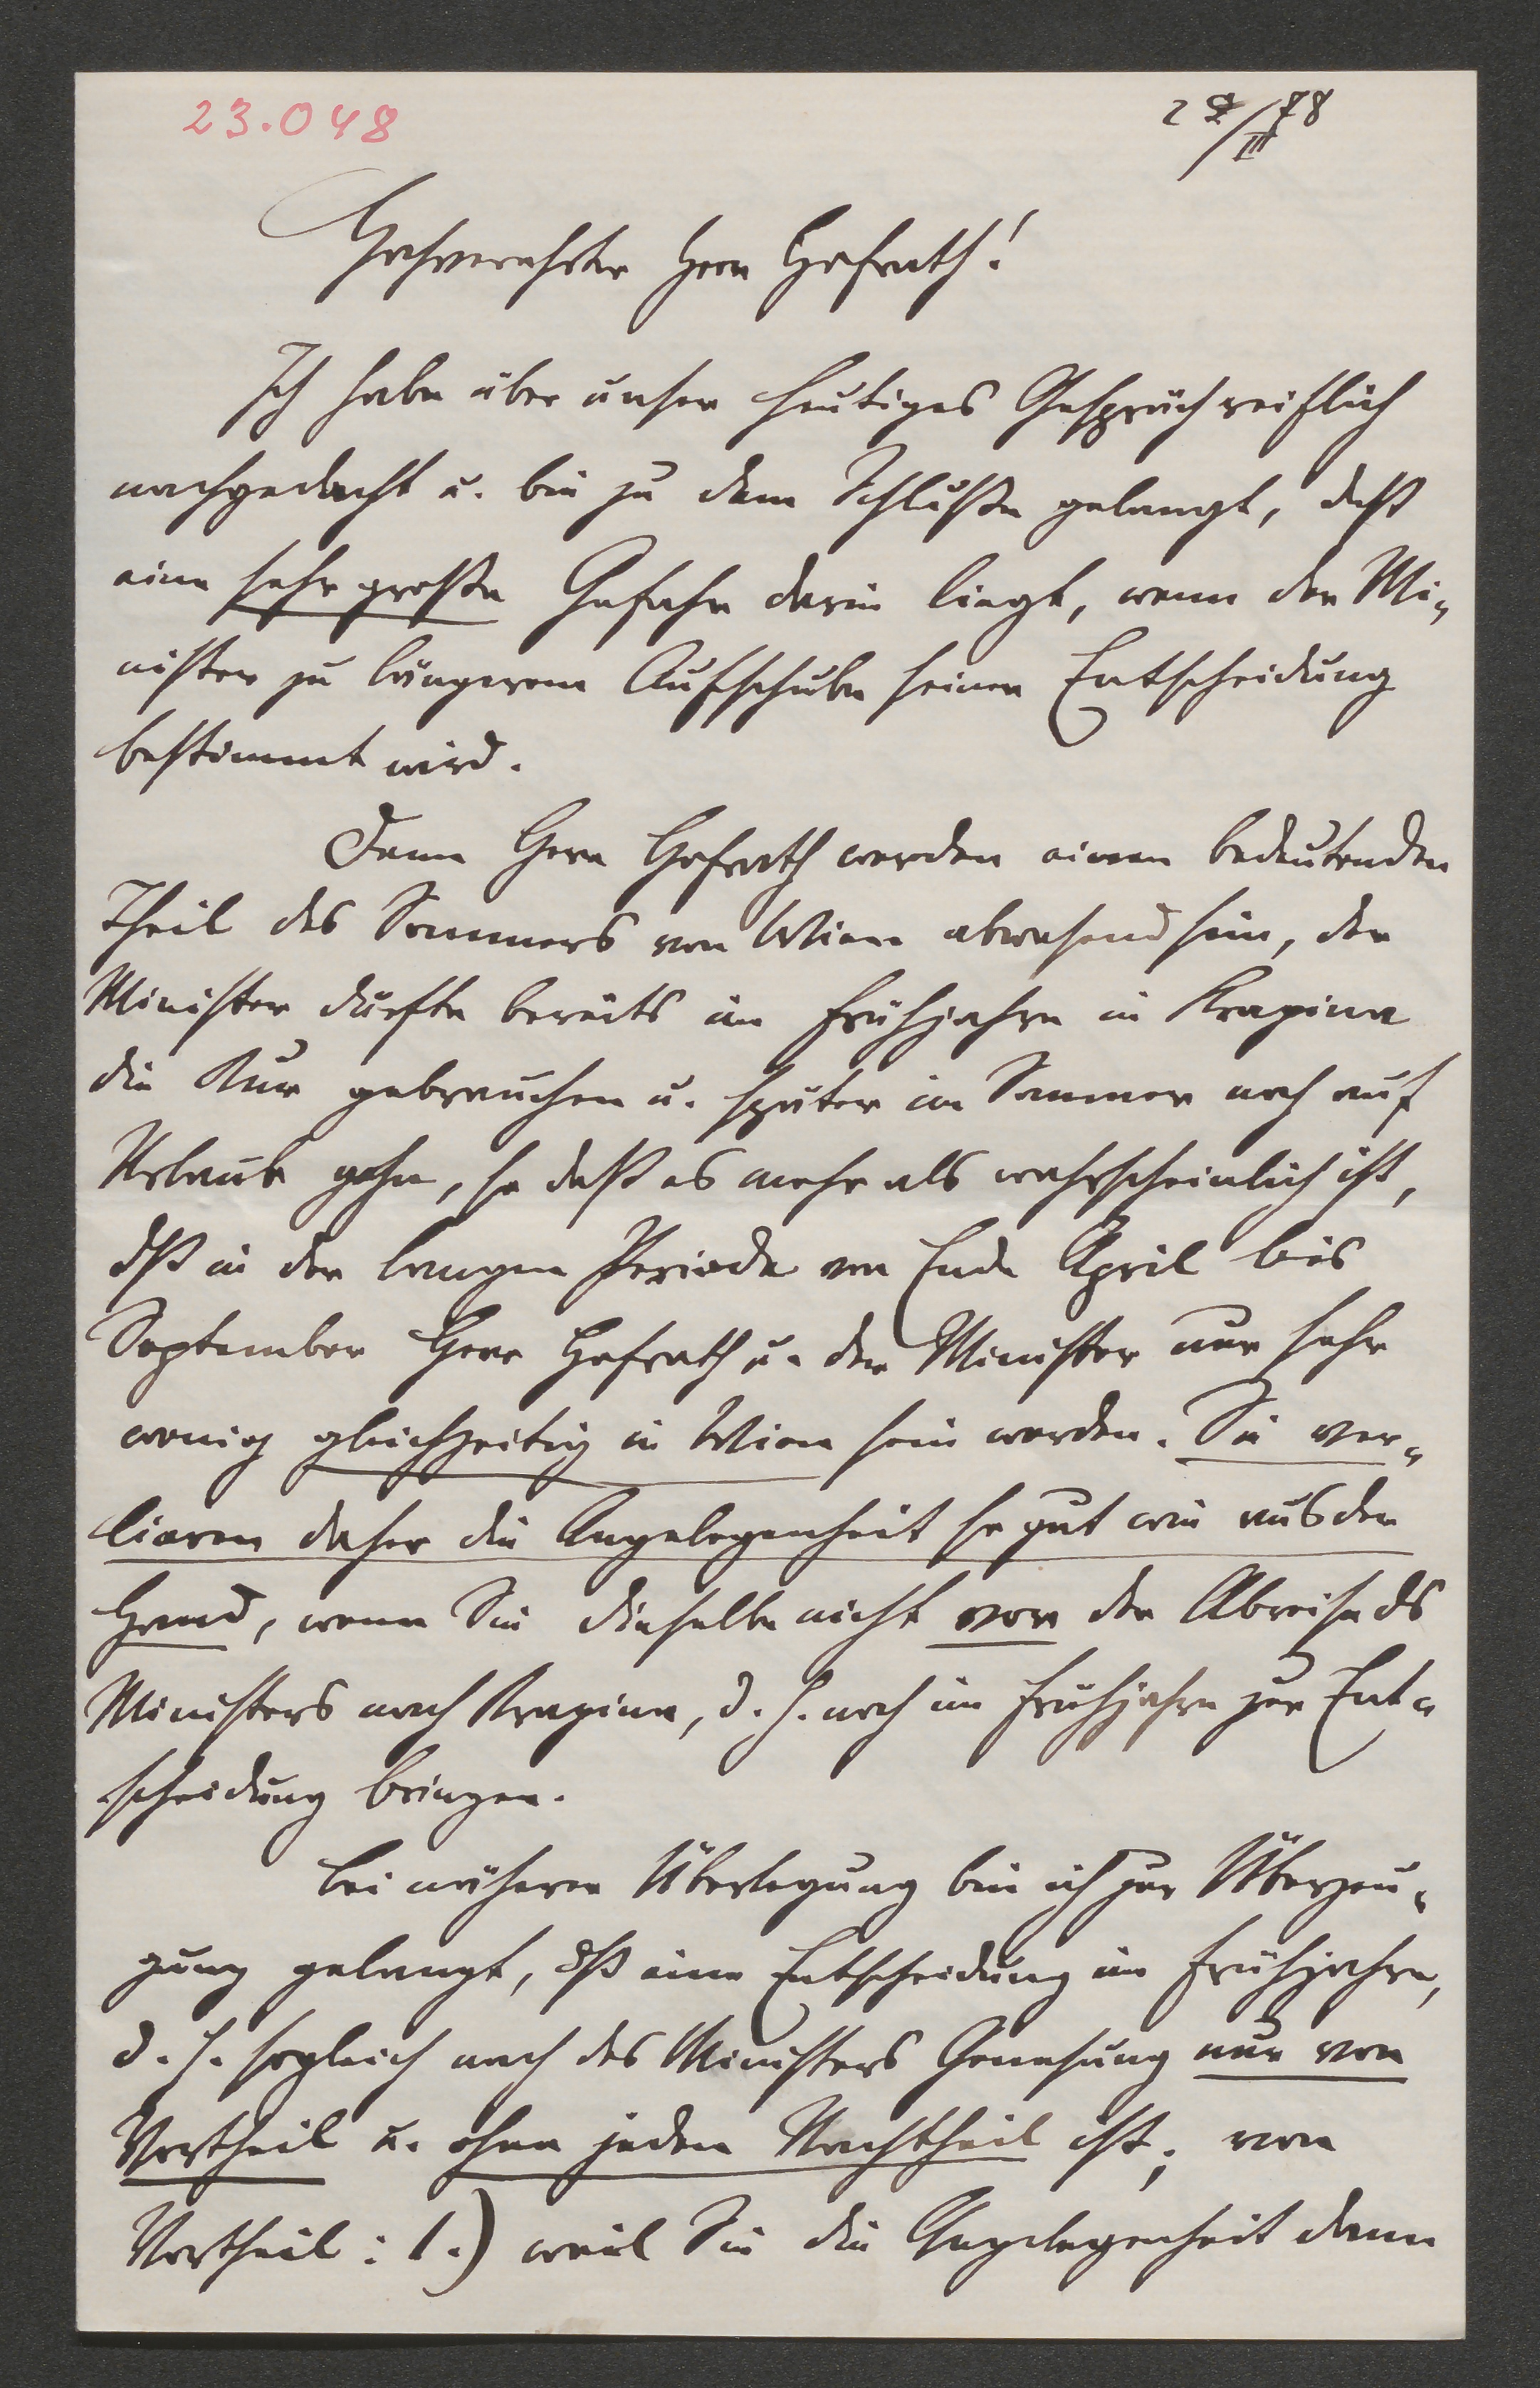 23.048
29/III 78
Hochverehrter Herr Hofrath!
Ich habe über unser heutiges Gespräch reiflich
nachgedacht u. bin zu dem Schluße gelangt, daß
eine sehr große Gefahr darin liegt, wenn der Mi-
nister zu längerem Aufschube seiner Entscheidung
bestimmt wird.
Denn Herr Hofrath werden einen bedeutenden
Theil des Sommers von Wien abwesend sein, der
Minister dürfte bereits im Frühjahre in Krapina
die Kur gebrauchen u. später im Sommer noch auf
Urlaub gehn, so daß es mehr als wahrscheinlich ist,
dß in der langen Periode von Ende April bis
September Herr Hofrath u. der Minister nur sehr
wenig gleichzeitig in Wien sein werden. Sie ver-
lieren daher die Angelegenheit so gut wie aus der
Hand, wenn Sie dieselbe nicht vor der Abreise ds
Ministers nach Krapina, d. h. noch im Frühjahre zur Ent-
scheidung bringen.
Bei näherer Überlegung bin ich zur Überzeu-
gung gelangt, dß eine Entscheidung im Frühjahre,
d. h. sogleich nach des Ministers Genesung nur von
Vortheil u. ohne jeden Nachtheil ist; von
Vortheil: 1.) weil Sie die Angelegenheit dann